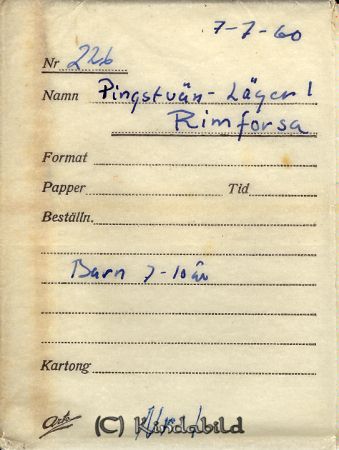 7-7-60
Nr 226
Namn Pingstvän-Läger 1
Rimforsa
Format
Papper Tid
Beställn.
Barn 7-10 år
Kartong
(C) Kindabild